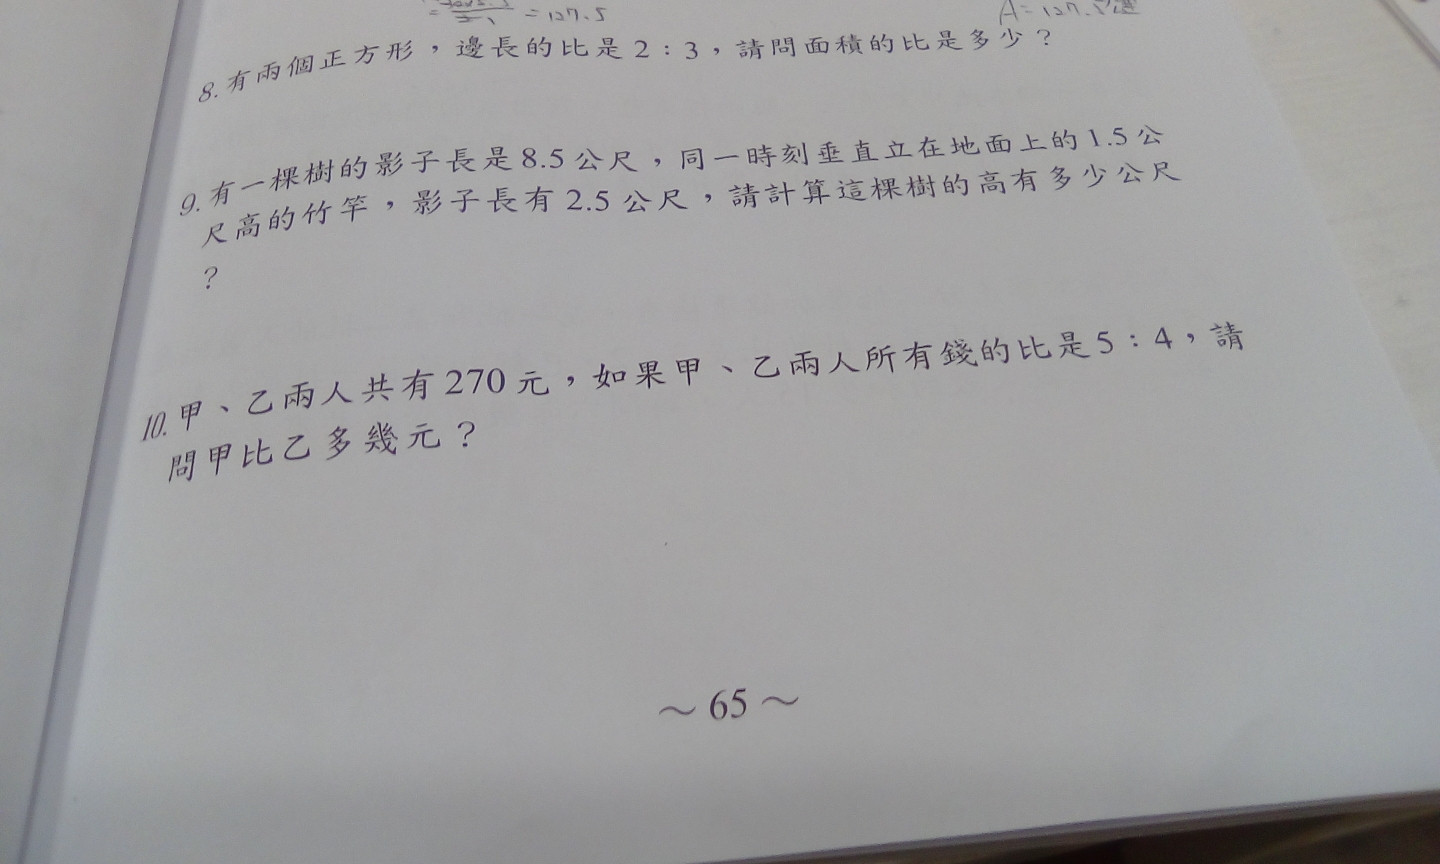 = 127.5
A = 127.5
8. 有兩個正方形，邊長的比是2：3，請問面積的比是多少？
9. 有一棵樹的影子長是8.5公尺，同一時刻垂直立在地面上的1.5公
尺高的竹竿，影子長有2.5公尺，請計算這棵樹的高有多少公尺
？
10. 甲、乙兩人共有270元，如果甲、乙兩人所有錢的比是5：4，請
問甲比乙多幾元？
～65～